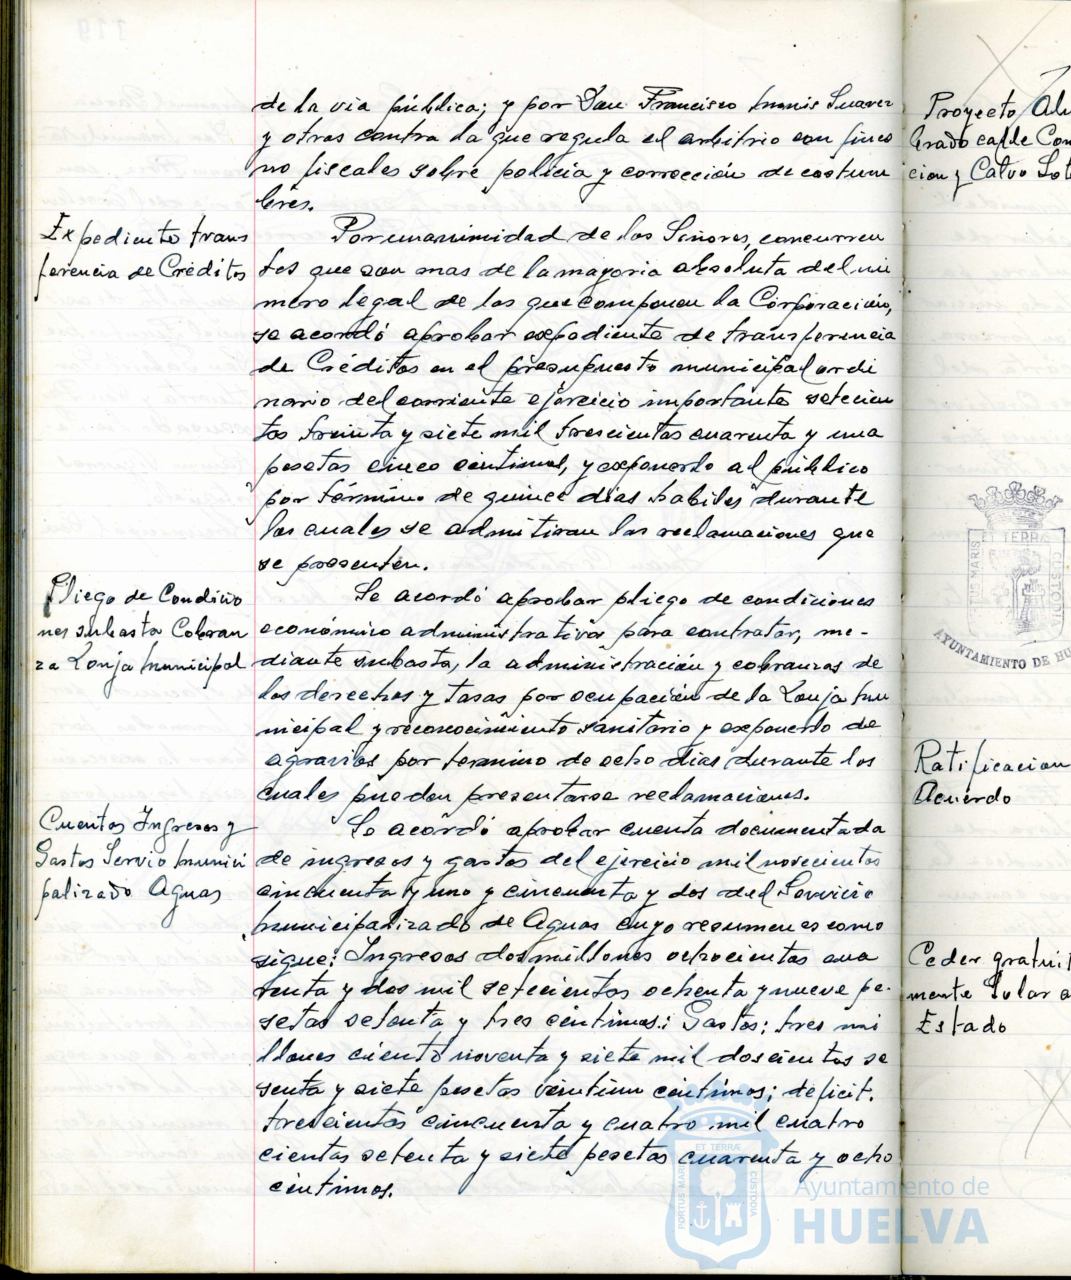 de la via pública; y por Don Francisco Suarez
y otros contra la que regula el arbitrio con fines
no fiscales sobre policía y corrección de costum
bres.
Expediente trans
ferencia de Créditos
Por unanimidad de los Señores, concurren
tes que son mas de la mayoria absoluta del nú
mero legal de los que componen la Corporación,
se acordó aprobar expediente de transferencia
de Créditos en el presupuesto municipal ordi
nario del corriente ejercicio importante setecien
tos treinta y siete mil trescientas cuarenta y una
pesetas cinco centimos, y exponerlo al público
por término de quince días habiles durante
los cuales se admitiran las reclamaciones que
se presenten.
Pliego de Condicio
nes subasta Cobran
za Lonja Municipal
Se acordó aprobar pliego de condiciones
económico administrativas para contratar, me-
diante subasta, la administración y cobranzas de
los derechos y tasas por ocupación de la Lonja Mu
nicipal y reconocimiento sanitario y exponerlo de
agravios por termino de ocho dias durante los
cuales pueden presentarse reclamaciones.
Cuentas Ingresos y
Gastos Servio Munici
palizado Aguas
Se acordó aprobar cuenta documentada
de ingresos y gastos del ejercicio mil novecientos
cincuenta y uno y cincuenta y dos del Servicio
Municipalizado de Aguas cuyo resumen es como
sigue: Ingresos dos millones ochocientas cua
renta y dos mil setecientas ochenta y nueve pe-
setas setenta y tres centimos; Gastos: tres mi
llones ciento noventa y siete mil doscientas se
senta y siete pesetas veintiun centimos; deficit.
trescientas cincuenta y cuatro mil cuatro
cientas setenta y siete pesetas cuarenta y ocho
centimos.
Proyecto Alu
brado calle Con
cion y Calvo Sot
PORTUS MARIS ET TERRÆ CUSTODIA
AYUNTAMIENTO DE HU
Ratificacion
Acuerdo
Ceder gratuit
mente Solar a
Estado
PORTUS MARIS ET TERRÆ CUSTODIA
Ayuntamiento de
HUELVA